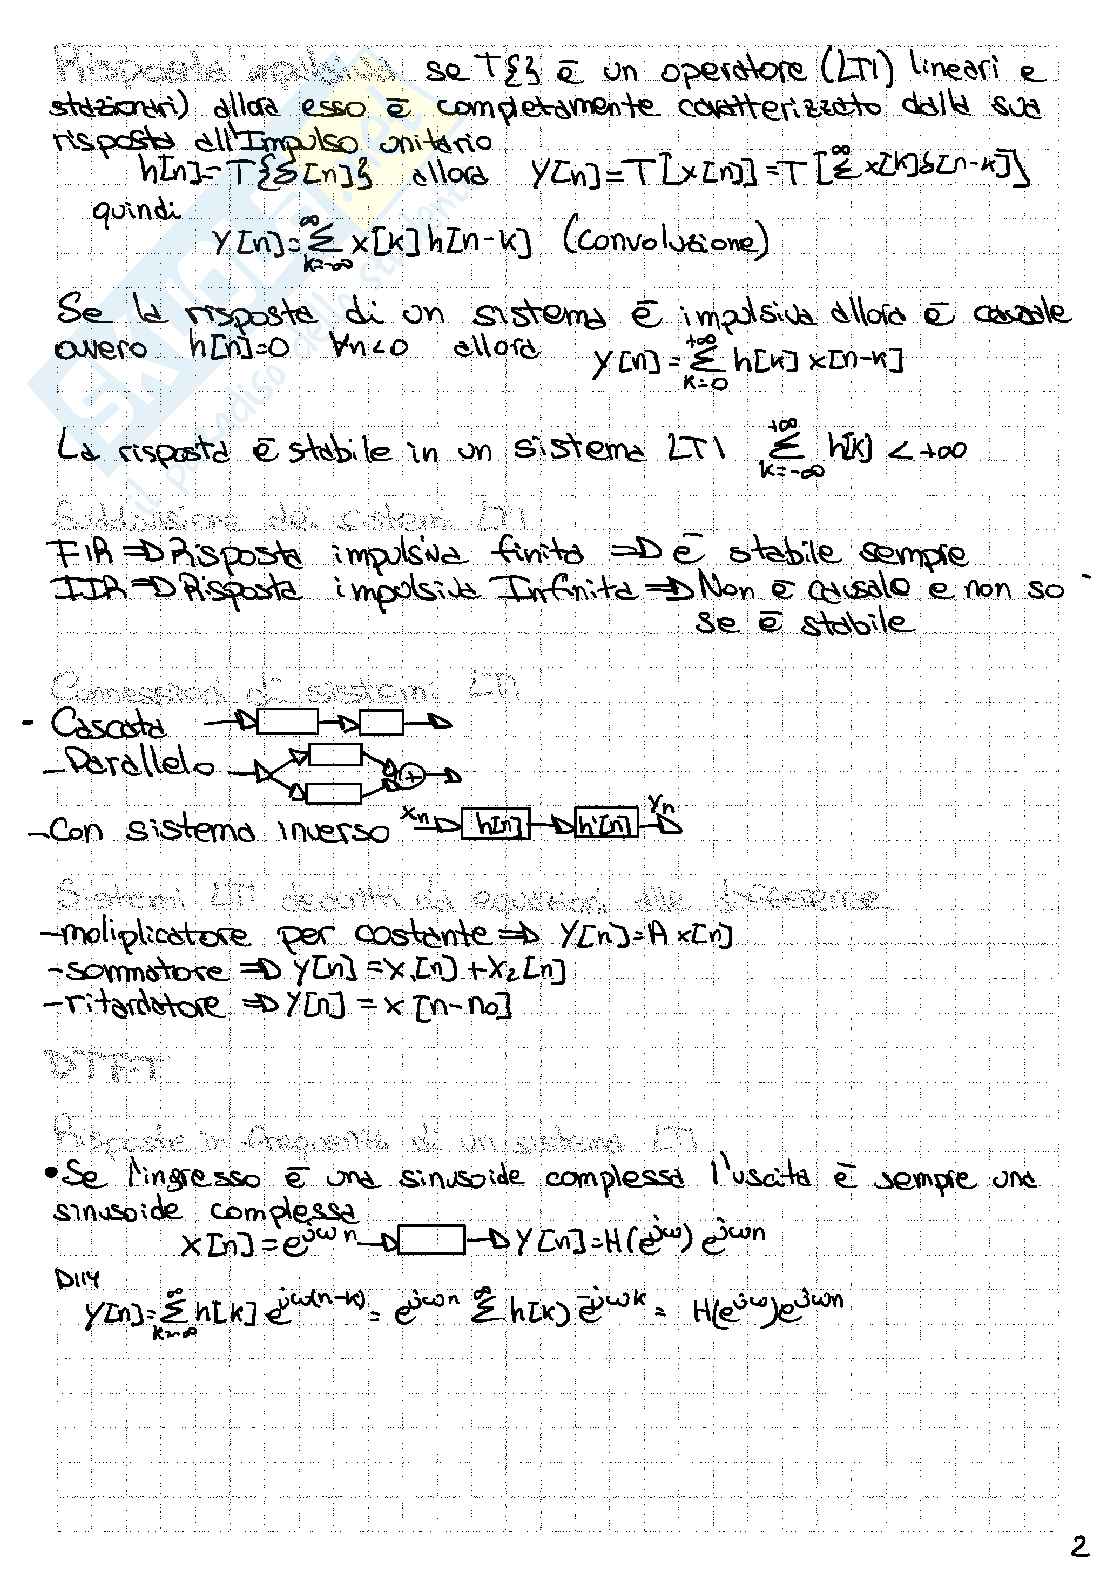 Risposta impulsiva se T{} ē un operatore (LTI) lineari e
stazionari) allora esso ē completamente caratterizzato dalla sua
risposta all'Impulso unitario
h[n]=T{δ[n]} allora Y[n]=T[x[n]]=T[∑^∞ x[k]δ[n-k]]
quindi
Y[n]=∑_{k=-∞}^{∞} x[k]h[n-k] (convoluzione)
Se la risposta di un sistema ē impulsiva allora ē casuale
ovvero h[n]=0 ∀n<0 allora Y[n]=∑_{k=0}^{+∞} h[k]x[n-k]
La risposta ē stabile in un sistema LTI ∑_{k=-∞}^{+∞} h[k] < +∞
Suddivisione dei sistemi LTI
FIR ⇒ Risposta impulsiva finita ⇒ ē stabile sempre
IIR ⇒ Risposta impulsiva Infinita ⇒ Non ē causale e non so
se ē stabile
Connessioni di sistemi LTI
- Cascata
- Parallelo +
- Con sistema inverso Xn h[n] h'[n] Yn
Sistemi LTI descritti da equazioni alle differenze
- moliplicatore per costante ⇒ Y[n]=A x[n]
- sommatore ⇒ Y[n]=X₁[n]+X₂[n]
- ritardatore ⇒ Y[n]=x[n-n0]
DTFT
Risposta in frequenza di un sistema LTI
• Se l'ingresso ē una sinusoide complessa l'uscita ē sempre una
sinusoide complessa
X[n]=e^{jωn} Y[n]=H(e^{jω})e^{jωn}
DIM
Y[n]=∑_{k=-∞}^{∞} h[k]e^{jω(n-k)}=e^{jωn} ∑^∞ h[k)e^{-jωk}= H(e^{jω})e^{jωn}
2